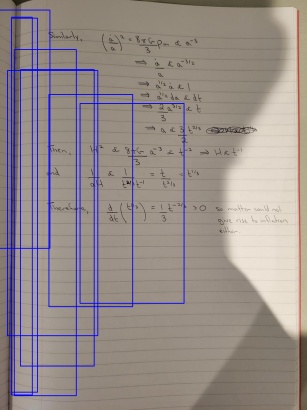 Similarly, (ȧ/a)² = 8πG/3 ρm α a⁻³
⇒ ȧ/a α a⁻³ᐟ²
⇒ a¹ᐟ² ȧ α 1
⇒ a¹ᐟ² da α dt
⇒ 2/3 a³ᐟ² α t
⇒ a α 3/2 t²ᐟ³
Then, H² α 8πG/3 a⁻³ α t⁻² ⇒ H α t⁻¹
and 1/aH α 1/t²ᐟ³t⁻¹ = t/t²ᐟ³ = t¹ᐟ³
Therefore, d/dt (t¹ᐟ³) = 1/3 t⁻²ᐟ³ > 0 so matter could not
give rise to inflation
either